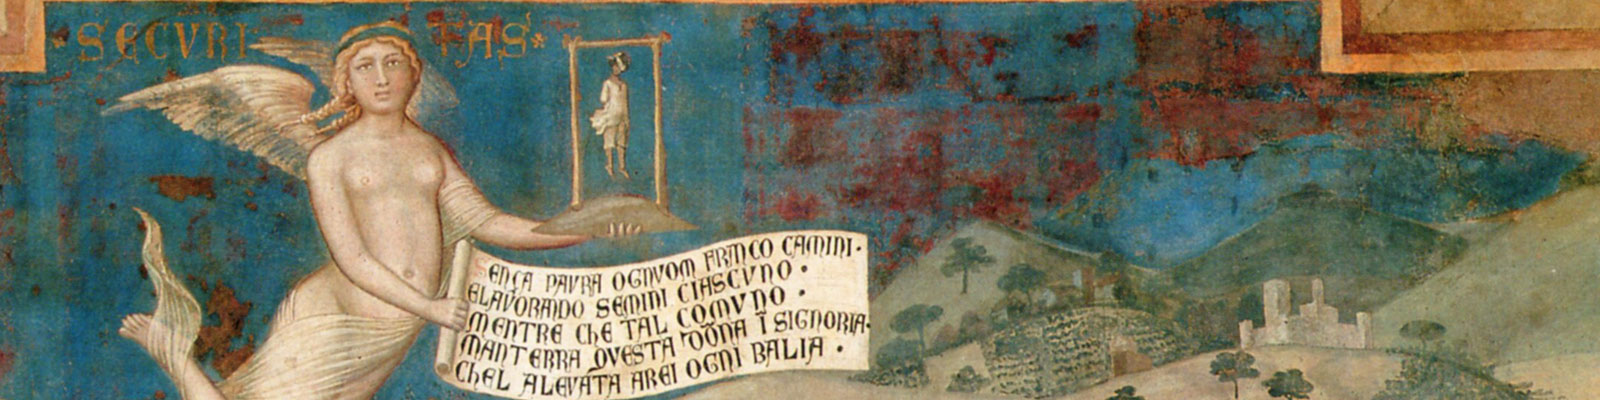 SECVRITAS
ENÇA PAVRA OGNVOM FRANCO CAMINI·
ELAVORANDO SEMINI CIASCVNO·
MENTRE CHE TAL COMVNO·
MANTERRA QVESTA DŌNA Ī SIGNORIA·
CHEL ALEVATA AREI OGNI BALIA·